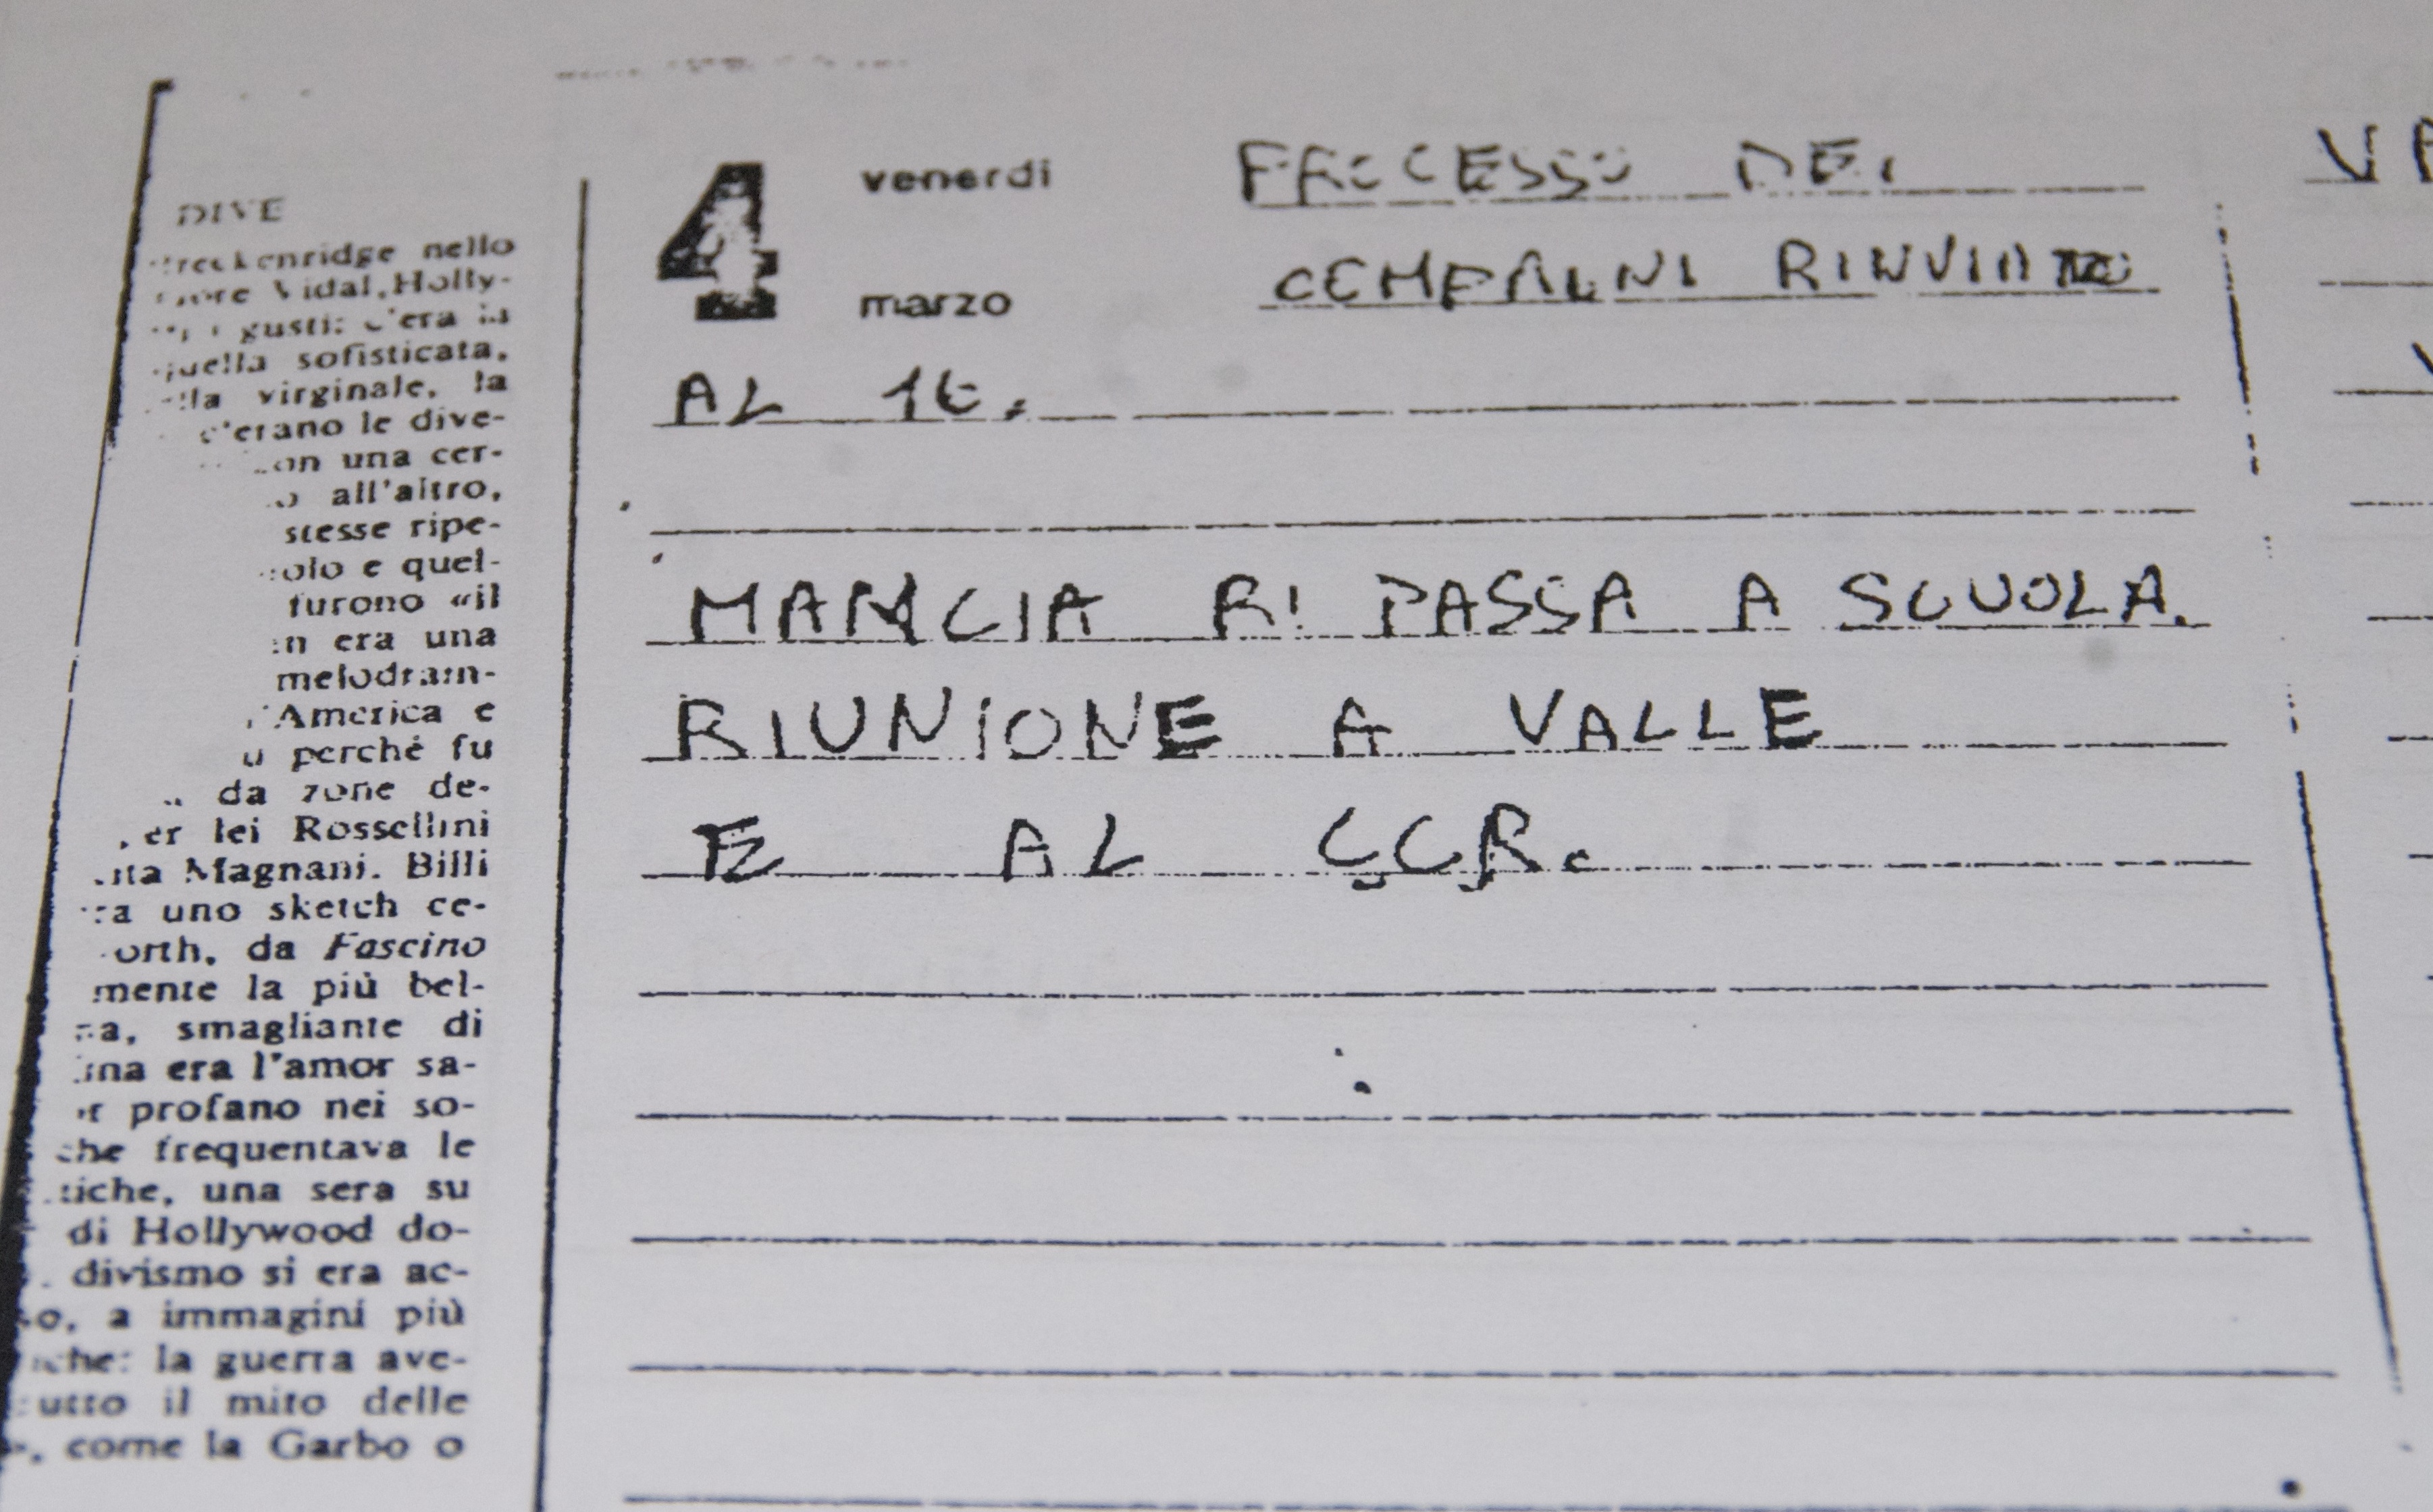 DIVE
nello
Vidal, Holly-
gusti: c'era la
quella sofisticata,
virginale, la
c'erano le dive-
una cer-
all'altro,
stesse ripe-
e quel-
furono «il
era una
melodram-
America e
perché fu
da zone de-
lei Rossellini
Magnani. Billi
uno sketch ce-
da Fascino
mente la più bel-
smagliante di
era l'amor sa-
profano nei so-
che frequentava le
una sera su
di Hollywood do-
divismo si era ac-
a immagini più
la guerra ave-
il mito delle
come la Garbo o
4 venerdì
marzo
PROCESSO DEI
COMPAGNI RINVIATO
AL
MANCIA RI PASSA A SCUOLA.
RIUNIONE A VALLE
E AL CCR.